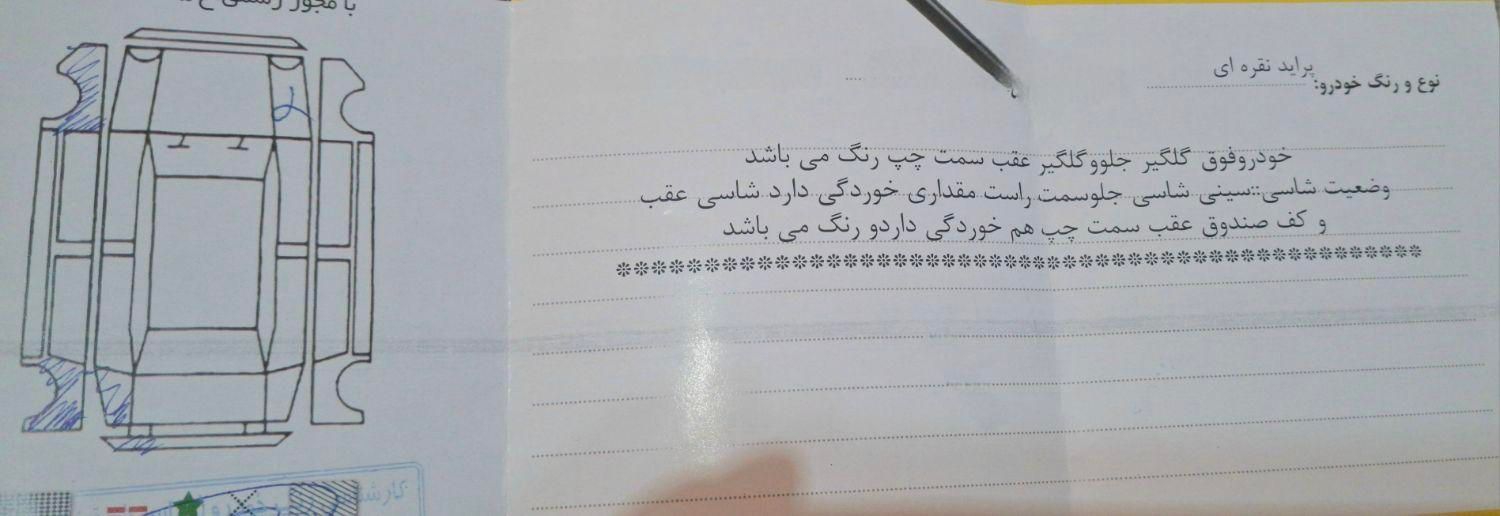 با مجوز رسمی
نوع و رنگ خودرو: پراید نقره ای
خودروفوق گلگیر جلووگلگیر عقب سمت چپ رنگ می باشد
وضعیت شاسی::سینی شاسی جلوسمت راست مقداری خوردگی دارد شاسی عقب
و کف صندوق عقب سمت چپ هم خوردگی داردو رنگ می باشد
**********************************************